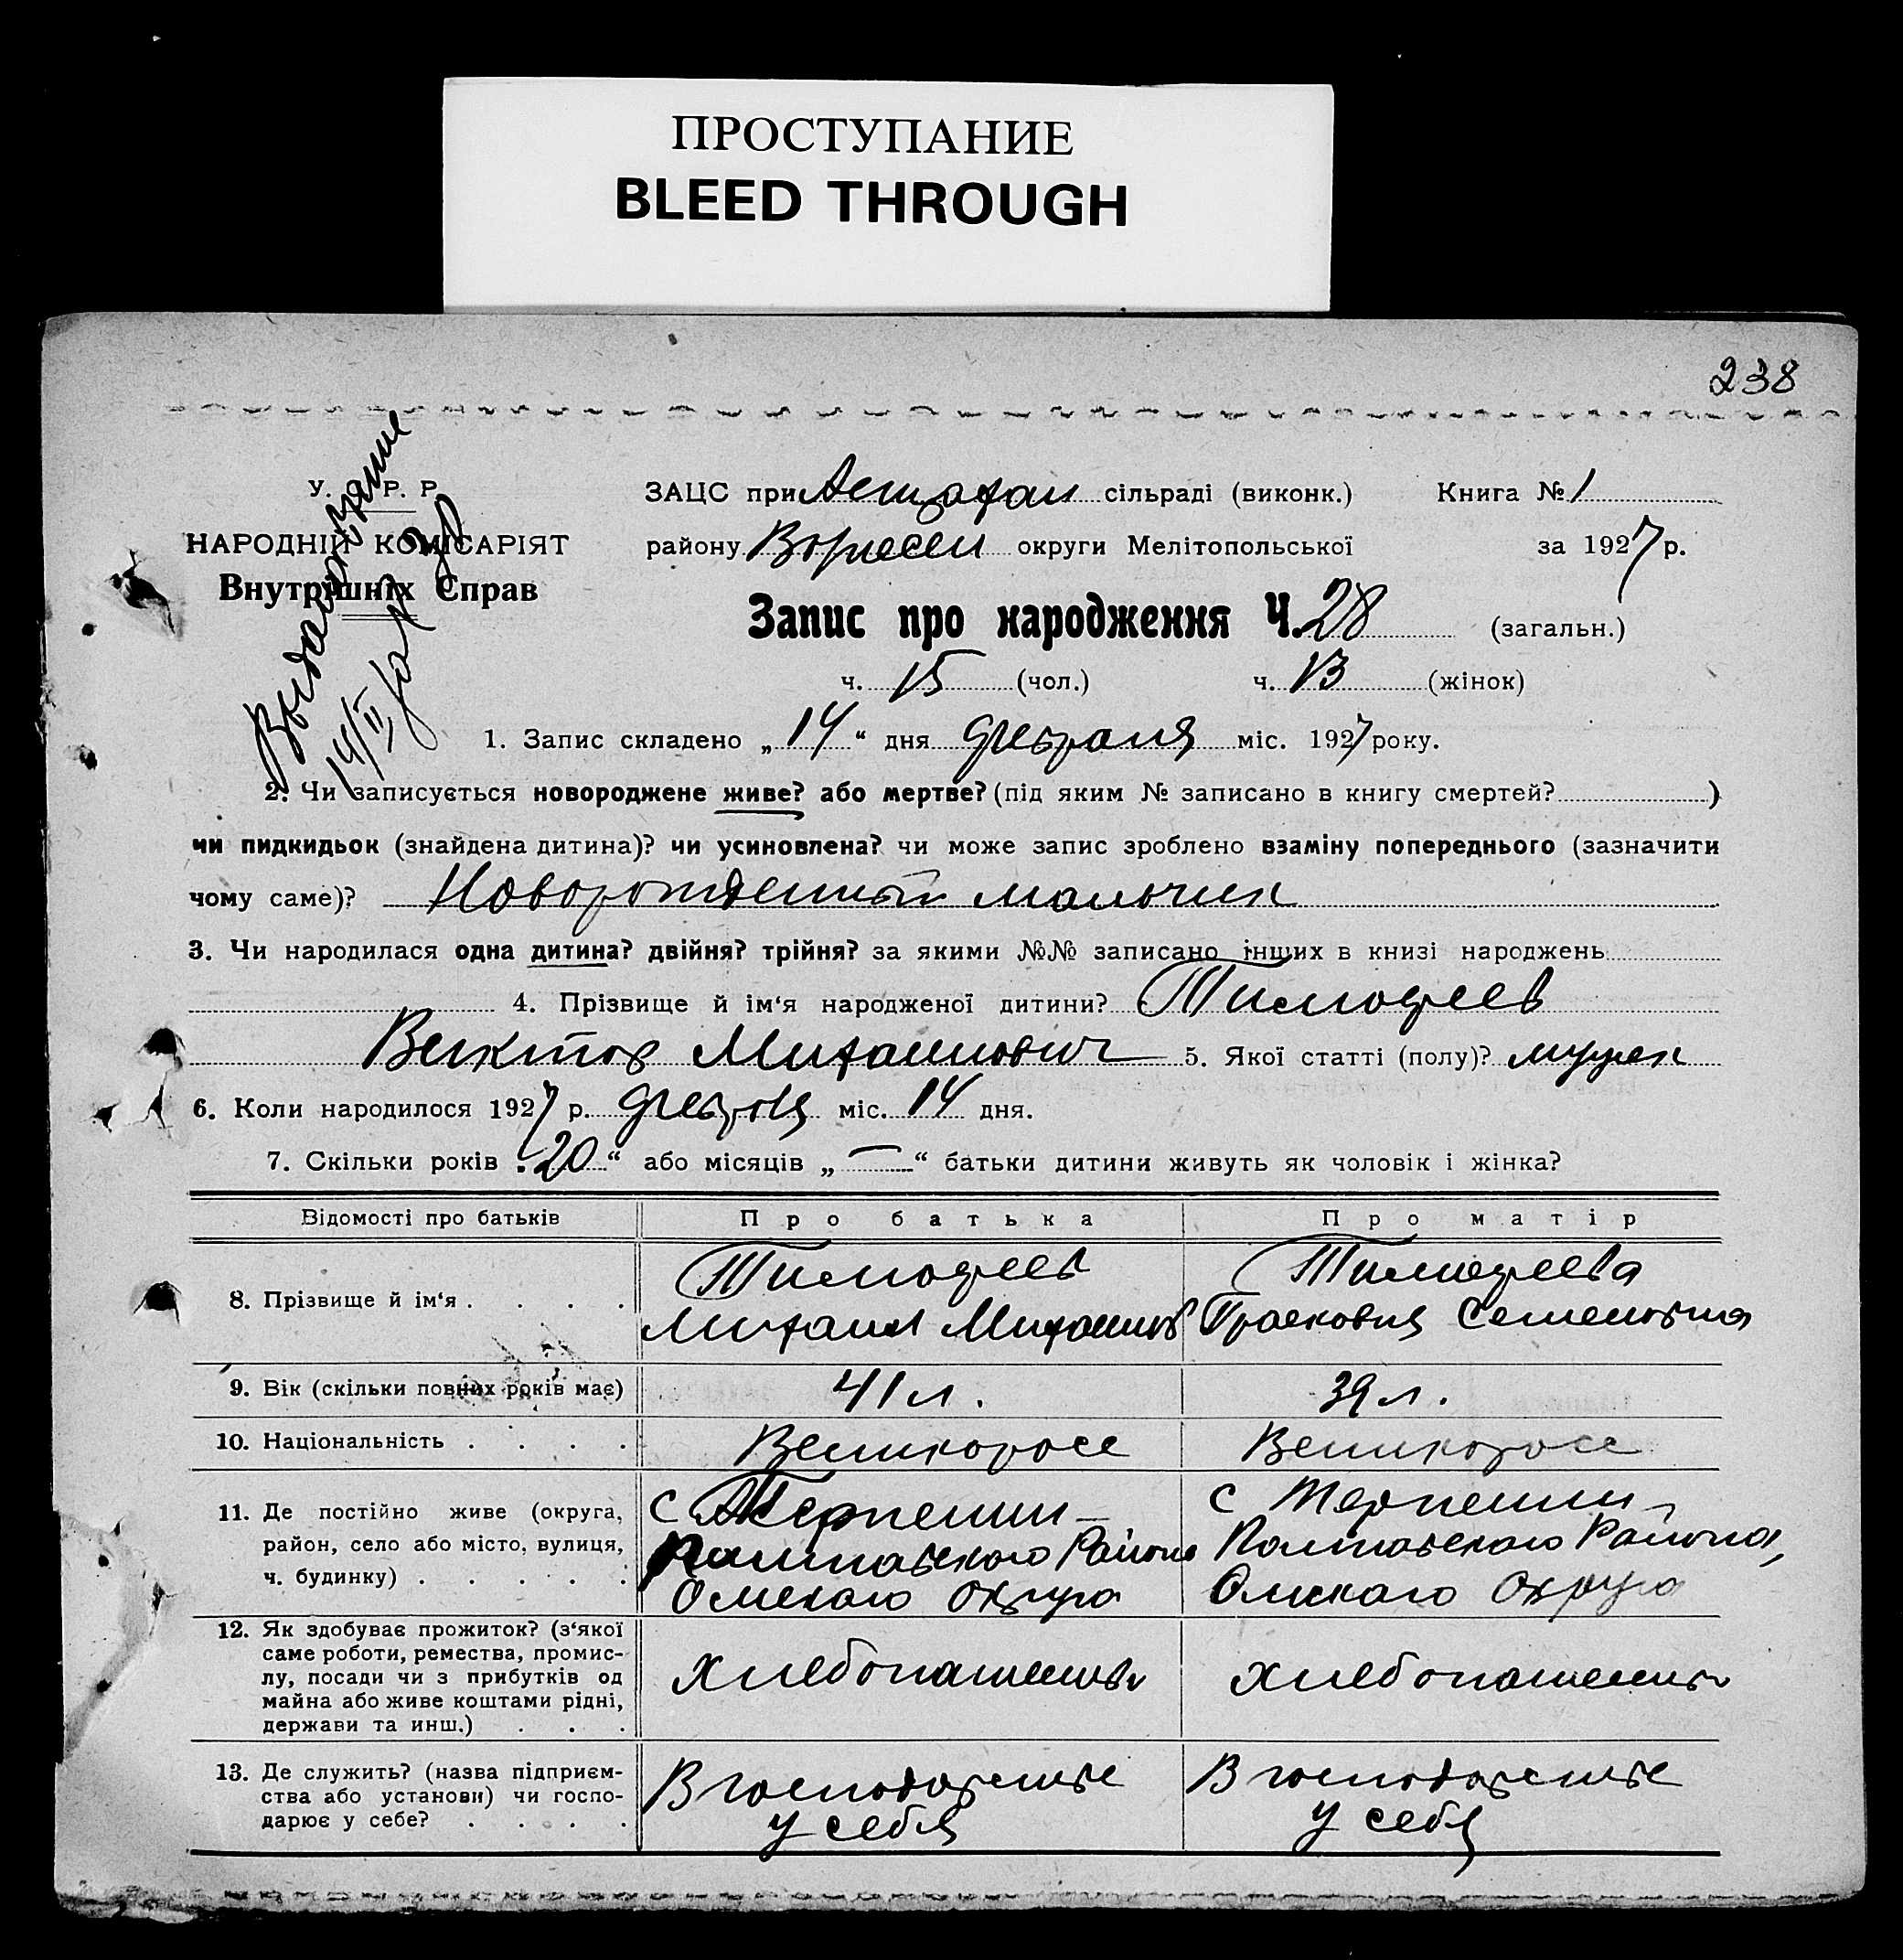 ПРОСТУПАНИЕ
BLEED THROUGH
238
У. С. Р. Р.
НАРОДНІЙ КОМІСАРІЯТ
Внутрішніх Справ
ЗАЦС при сільраді (виконк.) Книга № 1
району округи Мелітопольської за 1927 р.
Запис про народження Ч. 28 (загальн.)
ч. 15 (чол.) ч. 13 (жінок)
1. Запис складено „14“ дня февраля міс. 1927 року.
2. Чи записується новороджене живе? або мертве? (під яким № записано в книгу смертей? )
чи пидкидьок (знайдена дитина)? чи усиновлена? чи може запис зроблено взаміну попереднього (зазначити
чому саме)? Новорожденный мальчик
3. Чи народилася одна дитина? двійня? трійня? за якими №№ записано інших в книзі народжень
4. Прізвище й ім‘я народженої дитини? Тимофеев
Виктор Михаилович 5. Якої статті (полу)? мужск
6. Коли народилося 1927 р. февраля міс. 14 дня.
7. Скільки років „20“ або місяців „—“ батьки дитини живуть як чоловік і жінка?
Відомості про батьків Про батька Про матір
8. Прізвище й ім‘я . . . .
Тимофеев
Михаил Михаилов
Тимофеева
Прасковия Семеновна
9. Вік (скільки повних років має) 41 л. 39 л.
10. Національність . . . . Великоросс Великоросс
11. Де постійно живе (округа,
район, село або місто, вулиця,
ч. будинку) . . . . .
с Терпении
Полтавского Района
Омскаго округа
с Терпении
Полтавского Района,
Омскаго округа
12. Як здобуває прожиток? (з‘якої
саме роботи, ремества, промис-
лу, посади чи з прибутків од
майна або живе коштами рідні,
держави та инш.) . . .
хлебопашеством
хлебопашеством
13. Де служить? (назва підприєм-
ства або установи) чи госпо-
дарює у себе? . . . .
В господарстве
у себя
В господарстве
у себя